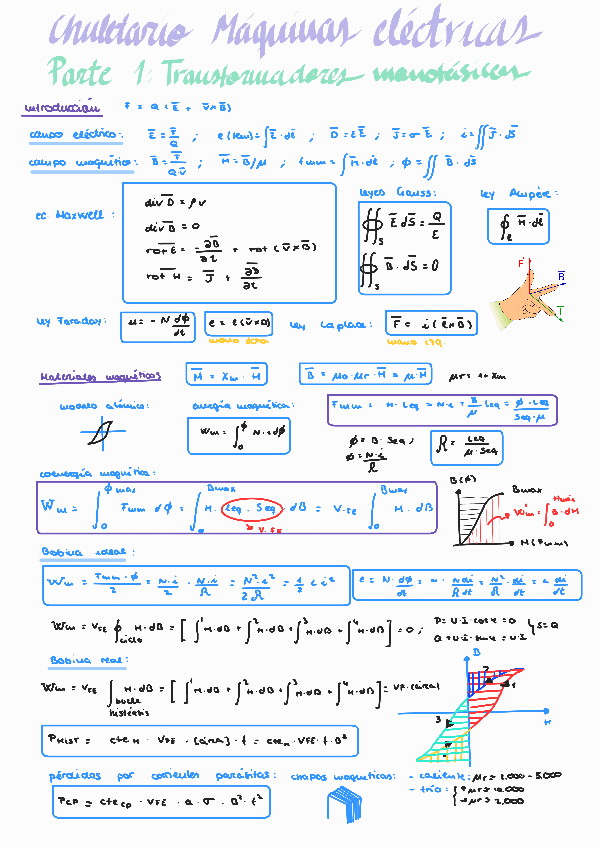 Chuletario Máquinas eléctricas
Parte 1: Transformadores monofásicos
introducción F = Q (E̅ + V̅×B̅)
campo eléctrico: E̅ = F̅/Q ; e(tau) = ∫E̅·dℓ̅ ; D̅ = εE̅ ; J̅ = σE̅ ; i = ∬J̅·dS̅
campo magnético: B̅ = F̅/Q·V ; H̅ = B̅/μ ; fmm = ∫H̅·dℓ ; ϕ = ∬B̅·dS̅
ec Maxwell: leyes Gauss: ley Ampère:
div D̅ = ρv
div B̅ = 0
rot E̅ = -∂B̅/∂t + rot (V̅×B̅)
rot H̅ = J̅ + ∂D̅/∂t
∯s E̅ dS̅ = Q/ε
∯s B̅·dS̅ = 0
∮e H̅·dℓ̅
F B̅ I
ley Faraday: μ = -N dϕ/dt e = ℓ(V̅×B) ley Laplace: F̅ = i(ℓ̅×B̅)
mano dcha mano izq
Materiales magnéticos M̅ = Xm·H̅ B̅ = μo·μr·H̅ = μ·H̅ μr = 1+Xm
modelo atómico: energía magnética: Fmm = H·Leq = N·i = B/μ Leq = ϕ·Leq/Seq·μ
Wm = ∫₀^ϕ N·i dϕ ϕ = B·Seq; ℛ = Leq/μ·Seq
ϕ = N·i/ℛ
coenergía magnética:
Wm = ∫₀^ϕmax Fmm dϕ = ∫₀^Bmax H·Leq·Seq dB = V·FE ∫₀^Bmax H·dB
V·FE
B(ϕ) Bmax Hmax W'm = ∫₀ B·dH H(Fmm)
Bobina ideal:
Wm = Fmm·ϕ/2 = N·i/2·N·i/ℛ = N²·i²/2ℛ = 1/2 L i² e = N·dϕ/dt = N·Ndi/ℛdt = N²/ℛ·di/dt = L di/dt
Wm = VFE ∮ciclo H·dB = [∫¹H·dB + ∫²H·dB + ∫³H·dB + ∫⁴H·dB] = 0; P = U·I·cos φ = 0
Q = U·I·sin φ = U·I } S = Q
Bobina real:
Wm = VFE ∫bucle histéresis H·dB = [∫¹H·dB + ∫²H·dB + ∫³H·dB + ∫⁴H·dB] = VF·(área)
B H 1 2 3 4
PHIST = cteH · VFE · [área]·f = cteH·VFE·f·B²
pérdidas por corrientes parásitas: chapas magnéticas: - caliente: μr = 1.000 - 5.000
- fría: { μr = 10.000
μr = 2,000
PCP = cteCP · VFE · a · σ · B²·f²